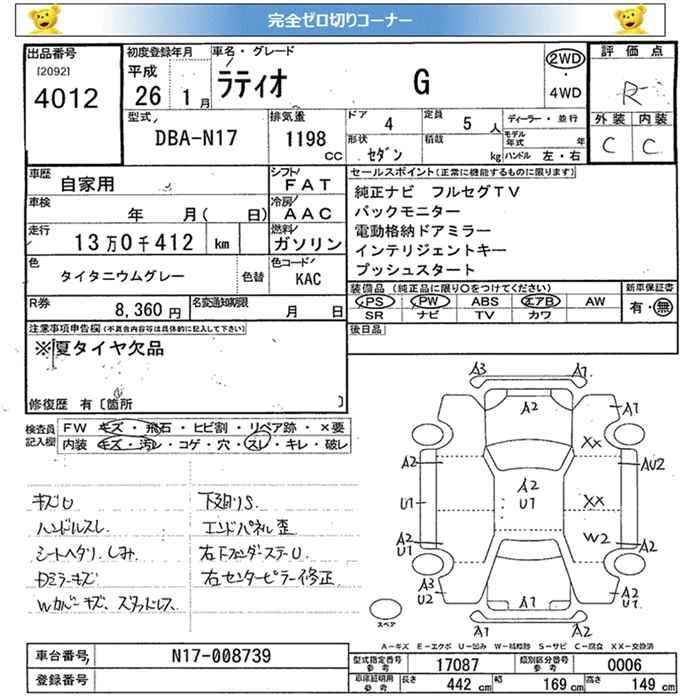 完全ゼロ切りコーナー
出品番号 [2092] 4012
初度登録年月 平成 26 1月
車名・グレード ラティオ G
2WD・4WD
評価点 R
外装 C 内装 C
型式 DBA-N17
排気量 1198 CC
ドア 4 定員 5 人
形状 セダン 積載 kg
ディーラー・並行
モデル年式 年
ハンドル 左・右
車歴 自家用
シフト FAT
車検 年 月( 日)
冷房 AAC
走行 13万0千412 km
燃料 ガソリン
色 タイタニウムグレー 色替
色コード KAC
R券 8,360 円
名変通知期限 月 日
セールスポイント(正常に機能するものに限ります)
純正ナビ フルセグTV
バックモニター
電動格納ドアミラー
インテリジェントキー
プッシュスタート
装備品 (純正品に限り○をつけてください)
PS PW ABS エアB AW
SR ナビ TV カワ
新車保証書
有・無
後日品
注意事項申告欄(不具合内容等は具体的に記入して下さい)
※夏タイヤ欠品
修復歴 有[箇所 ]
検査員記入欄
FW キズ・飛石・ヒビ割・リペア跡・×要
内装 キズ・汚レ・コゲ・穴・スレ・キレ・破レ
キズU
ハンドルスレ
シートヘタリ シミ
Dミラーキズ
Wカバーキズ スタッドレス
下廻りS
エンドパネル歪
右Fフェンダーステー U
右センターピラー修正
A3 A1
A2
A1
XX
A2 AU2
A2
U1 U1 XX
W2
A2 A2
U1
A3 A2
U2 U1
A2
A1 A2
スペア
A-キズ E-エクボ U-凹み W-補修跡 S-サビ C-腐食 XX-交換済
車台番号 N17-008739
登録番号
型式指定番号 参考 17087
類別区分番号 参考 0006
車庫証明用 参考 長さ 442 cm 幅 169 cm 高さ 149 cm